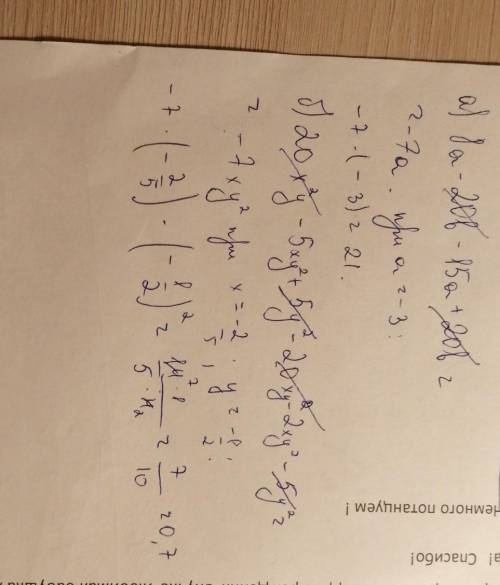 а) 8а - 20b - 15а + 20b =
= -7а. при а = -3:
-7 · (-3) = 21.
б) 20x²y - 5xy² + 5y² - 20x²y - 2xy² - 5y² =
= -7xy² при x = -2/5, y = -1/2:
-7 · (-2/5) · (-1/2)² = 14 · 1 / 5 · 4₂ = 7/10 = 0,7
Немного потанцуем !
Спасибо!